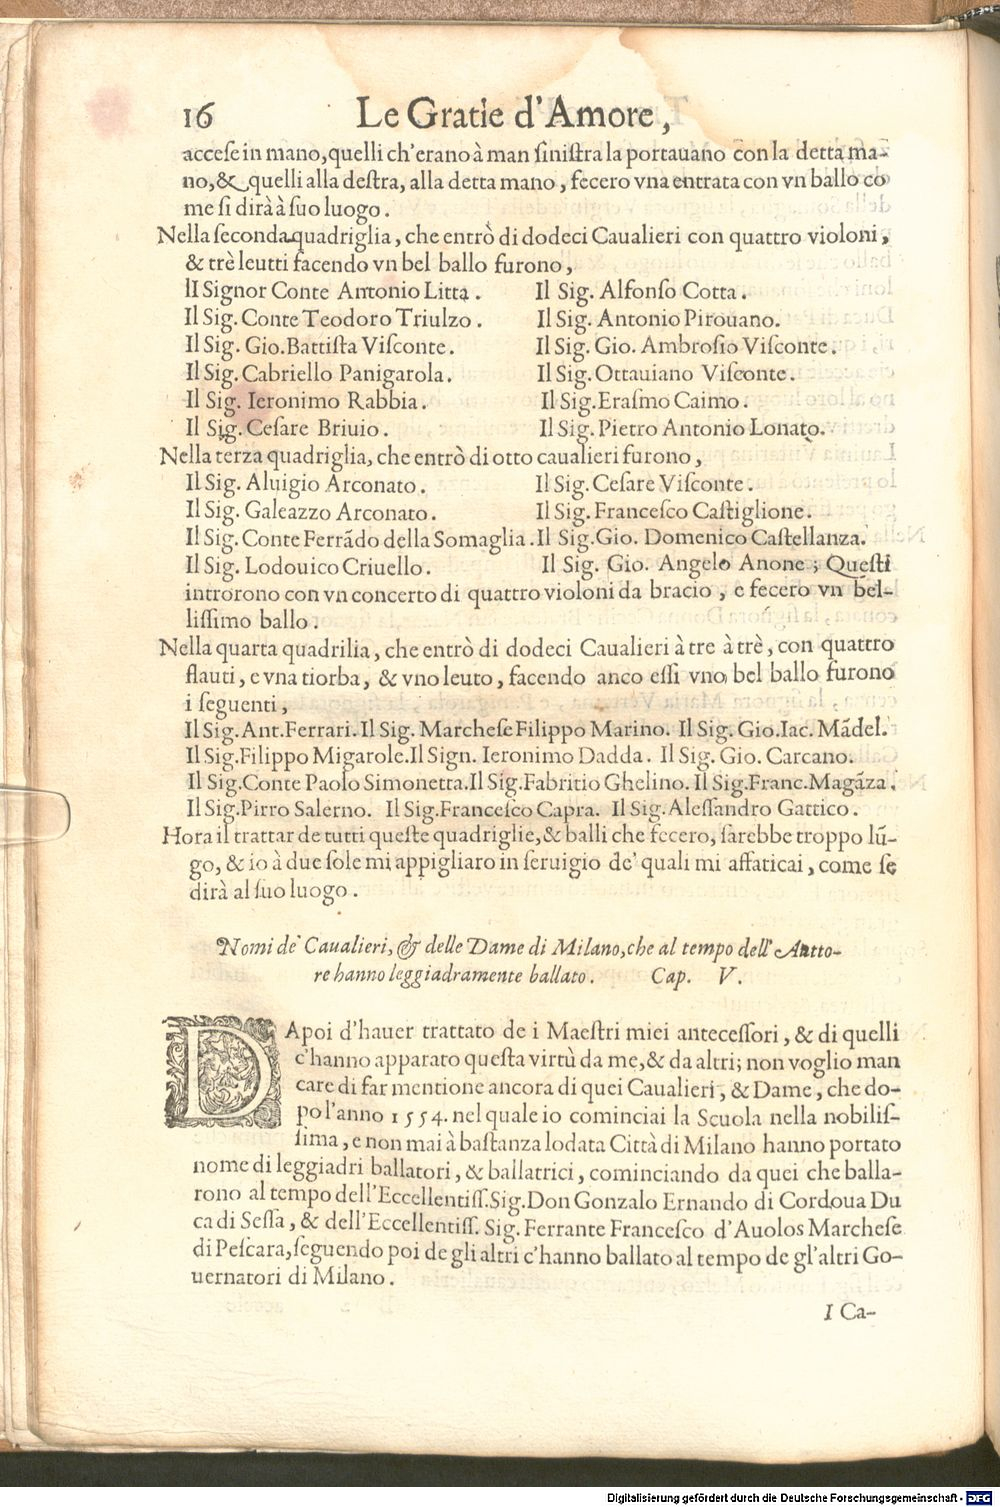 16 Le Gratie d'Amore,
acceſe in mano, quelli ch'erano à man ſiniſtra la portauano con la detta ma-
no, & quelli alla deſtra, alla detta mano, fecero vna entrata con vn ballo co
me ſi dirà à ſuo luogo.
Nella ſeconda quadriglia, che entrò di dodeci Caualieri con quattro violoni,
& trè leutti facendo vn bel ballo furono,
Il Signor Conte Antonio Litta. Il Sig. Alfonſo Cotta.
Il Sig. Conte Teodoro Triulzo. Il Sig. Antonio Pirouano.
Il Sig. Gio. Battiſta Viſconte. Il Sig. Gio. Ambroſio Viſconte.
Il Sig. Cabriello Panigarola. Il Sig. Ottauiano Viſconte.
Il Sig. Ieronimo Rabbia. Il Sig. Eraſmo Caimo.
Il Sig. Ceſare Briuio. Il Sig. Pietro Antonio Lonato.
Nella terza quadriglia, che entrò di otto caualieri furono,
Il Sig. Aluigio Arconato. Il Sig. Ceſare Viſconte.
Il Sig. Galeazzo Arconato. Il Sig. Franceſco Caſtiglione.
Il Sig. Conte Ferrãdo della Somaglia. Il Sig. Gio. Domenico Caſtellanza.
Il Sig. Lodouico Criuello. Il Sig. Gio. Angelo Anone; Queſti
introrono con vn concerto di quattro violoni da bracio, e fecero vn bel-
liſſimo ballo.
Nella quarta quadrilia, che entrò di dodeci Caualieri à tre à trè, con quattro
flauti, e vna tiorba, & vno leuto, facendo anco eſſi vno bel ballo furono
i ſeguenti,
Il Sig. Ant. Ferrari. Il Sig. Marcheſe Filippo Marino. Il Sig. Gio. Iac. Mãdel.
Il Sig. Filippo Migarole. Il Sign. Ieronimo Dadda. Il Sig. Gio. Carcano.
Il Sig. Conte Paolo Simonetta. Il Sig. Fabritio Ghelino. Il Sig. Franc. Magãza.
Il Sig. Pirro Salerno. Il Sig. Franceſco Capra. Il Sig. Aleſſandro Gattico.
Hora il trattar de tutti queſte quadriglie, & balli che fecero, ſarebbe troppo lũ-
go, & io à due ſole mi appigliaro in ſeruigio de' quali mi affaticai, come ſe
dirà al ſuo luogo.
Nomi de' Caualieri, & delle Dame di Milano, che al tempo dell' Autto-
re hanno leggiadramente ballato. Cap. V.
DApoi d'hauer trattato de i Maeſtri miei anteceſſori, & di quelli
c'hanno apparato queſta virtù da me, & da altri; non voglio man
care di far mentione ancora di quei Caualieri, & Dame, che do-
po l'anno 1554. nel quale io cominciai la Scuola nella nobiliſ-
ſima, e non mai à baſtanza lodata Città di Milano hanno portato
nome di leggiadri ballatori, & ballatrici, cominciando da quei che balla-
rono al tempo dell'Eccellentiſſ. Sig. Don Gonzalo Ernando di Cordoua Du
ca di Seſſa, & dell'Eccellentiſſ. Sig. Ferrante Franceſco d'Auolos Marcheſe
di Peſcara, ſeguendo poi de gli altri c'hanno ballato al tempo de gl'altri Go-
uernatori di Milano.
I Ca-
Digitalisierung gefördert durch die Deutsche Forschungsgemeinschaft - DFG